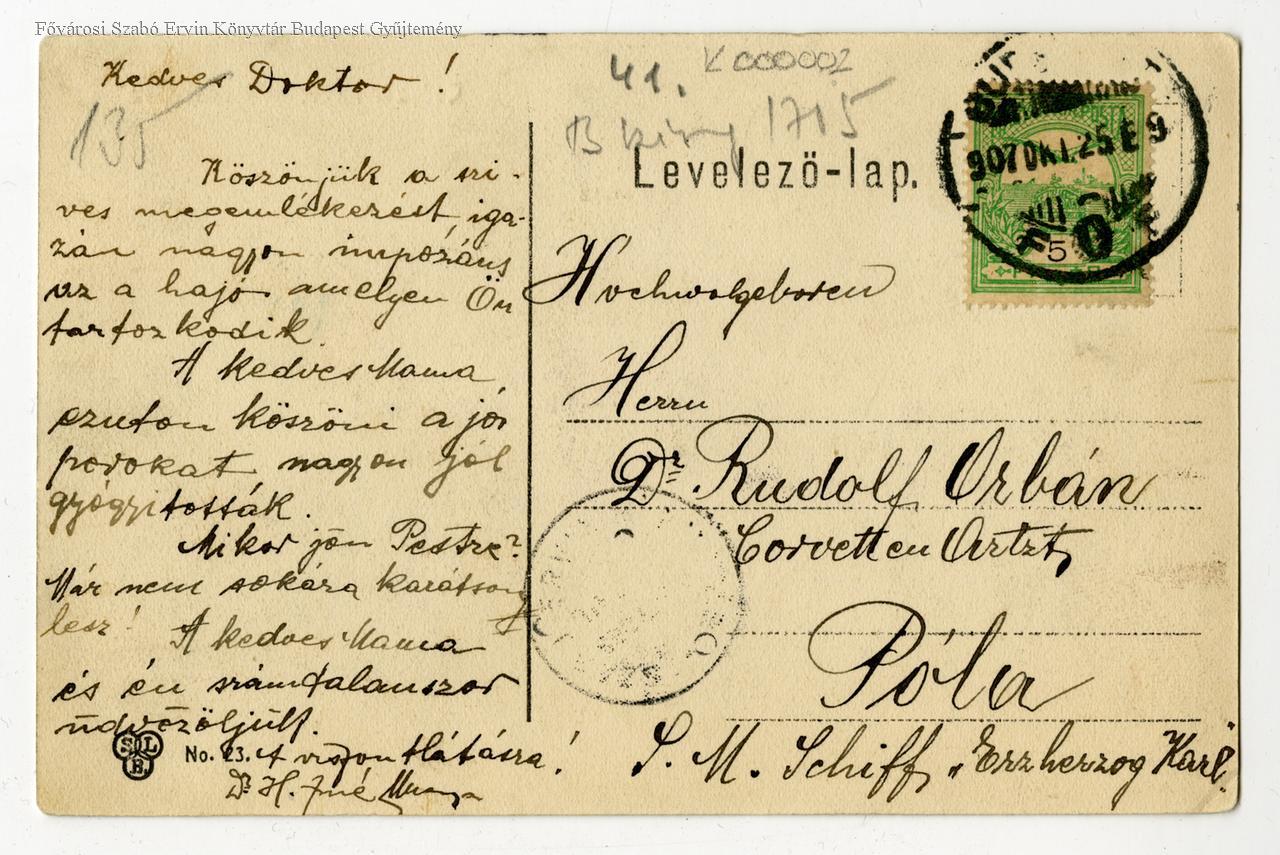 Fővárosi Szabó Ervin Könyvtár Budapest Gyűjtemény
Kedves Doktor!
135
Köszönjük a szi-
ves megemlékezést iga-
zán nagyon impozáns
az a hajó amelyen Ön
tartozkodik.
A kedves Mama
ezuton köszöni a jó
porokat nagyon jól
gyógyitották.
Mikor jön Pestre?
Már nem sokára karátsony
lesz!
A kedves Mama
és én számtalanszor
üdvözöljük.
A viszontlátásra!
Dr. H.
SLB
No. 23.
41.
K 000002
B 1715
Levelező-lap.
907 OKT. 25 E 9
5
Hochwolgeboren
Herrn
Dr. Rudolf Orbán
Corvetten Artzt
Póla
S. M. Schiff "Erzherzog Karl"